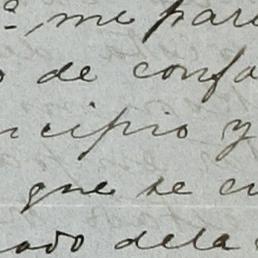 ª, me pare
de confo
ncipio y
que se cu
ado dela